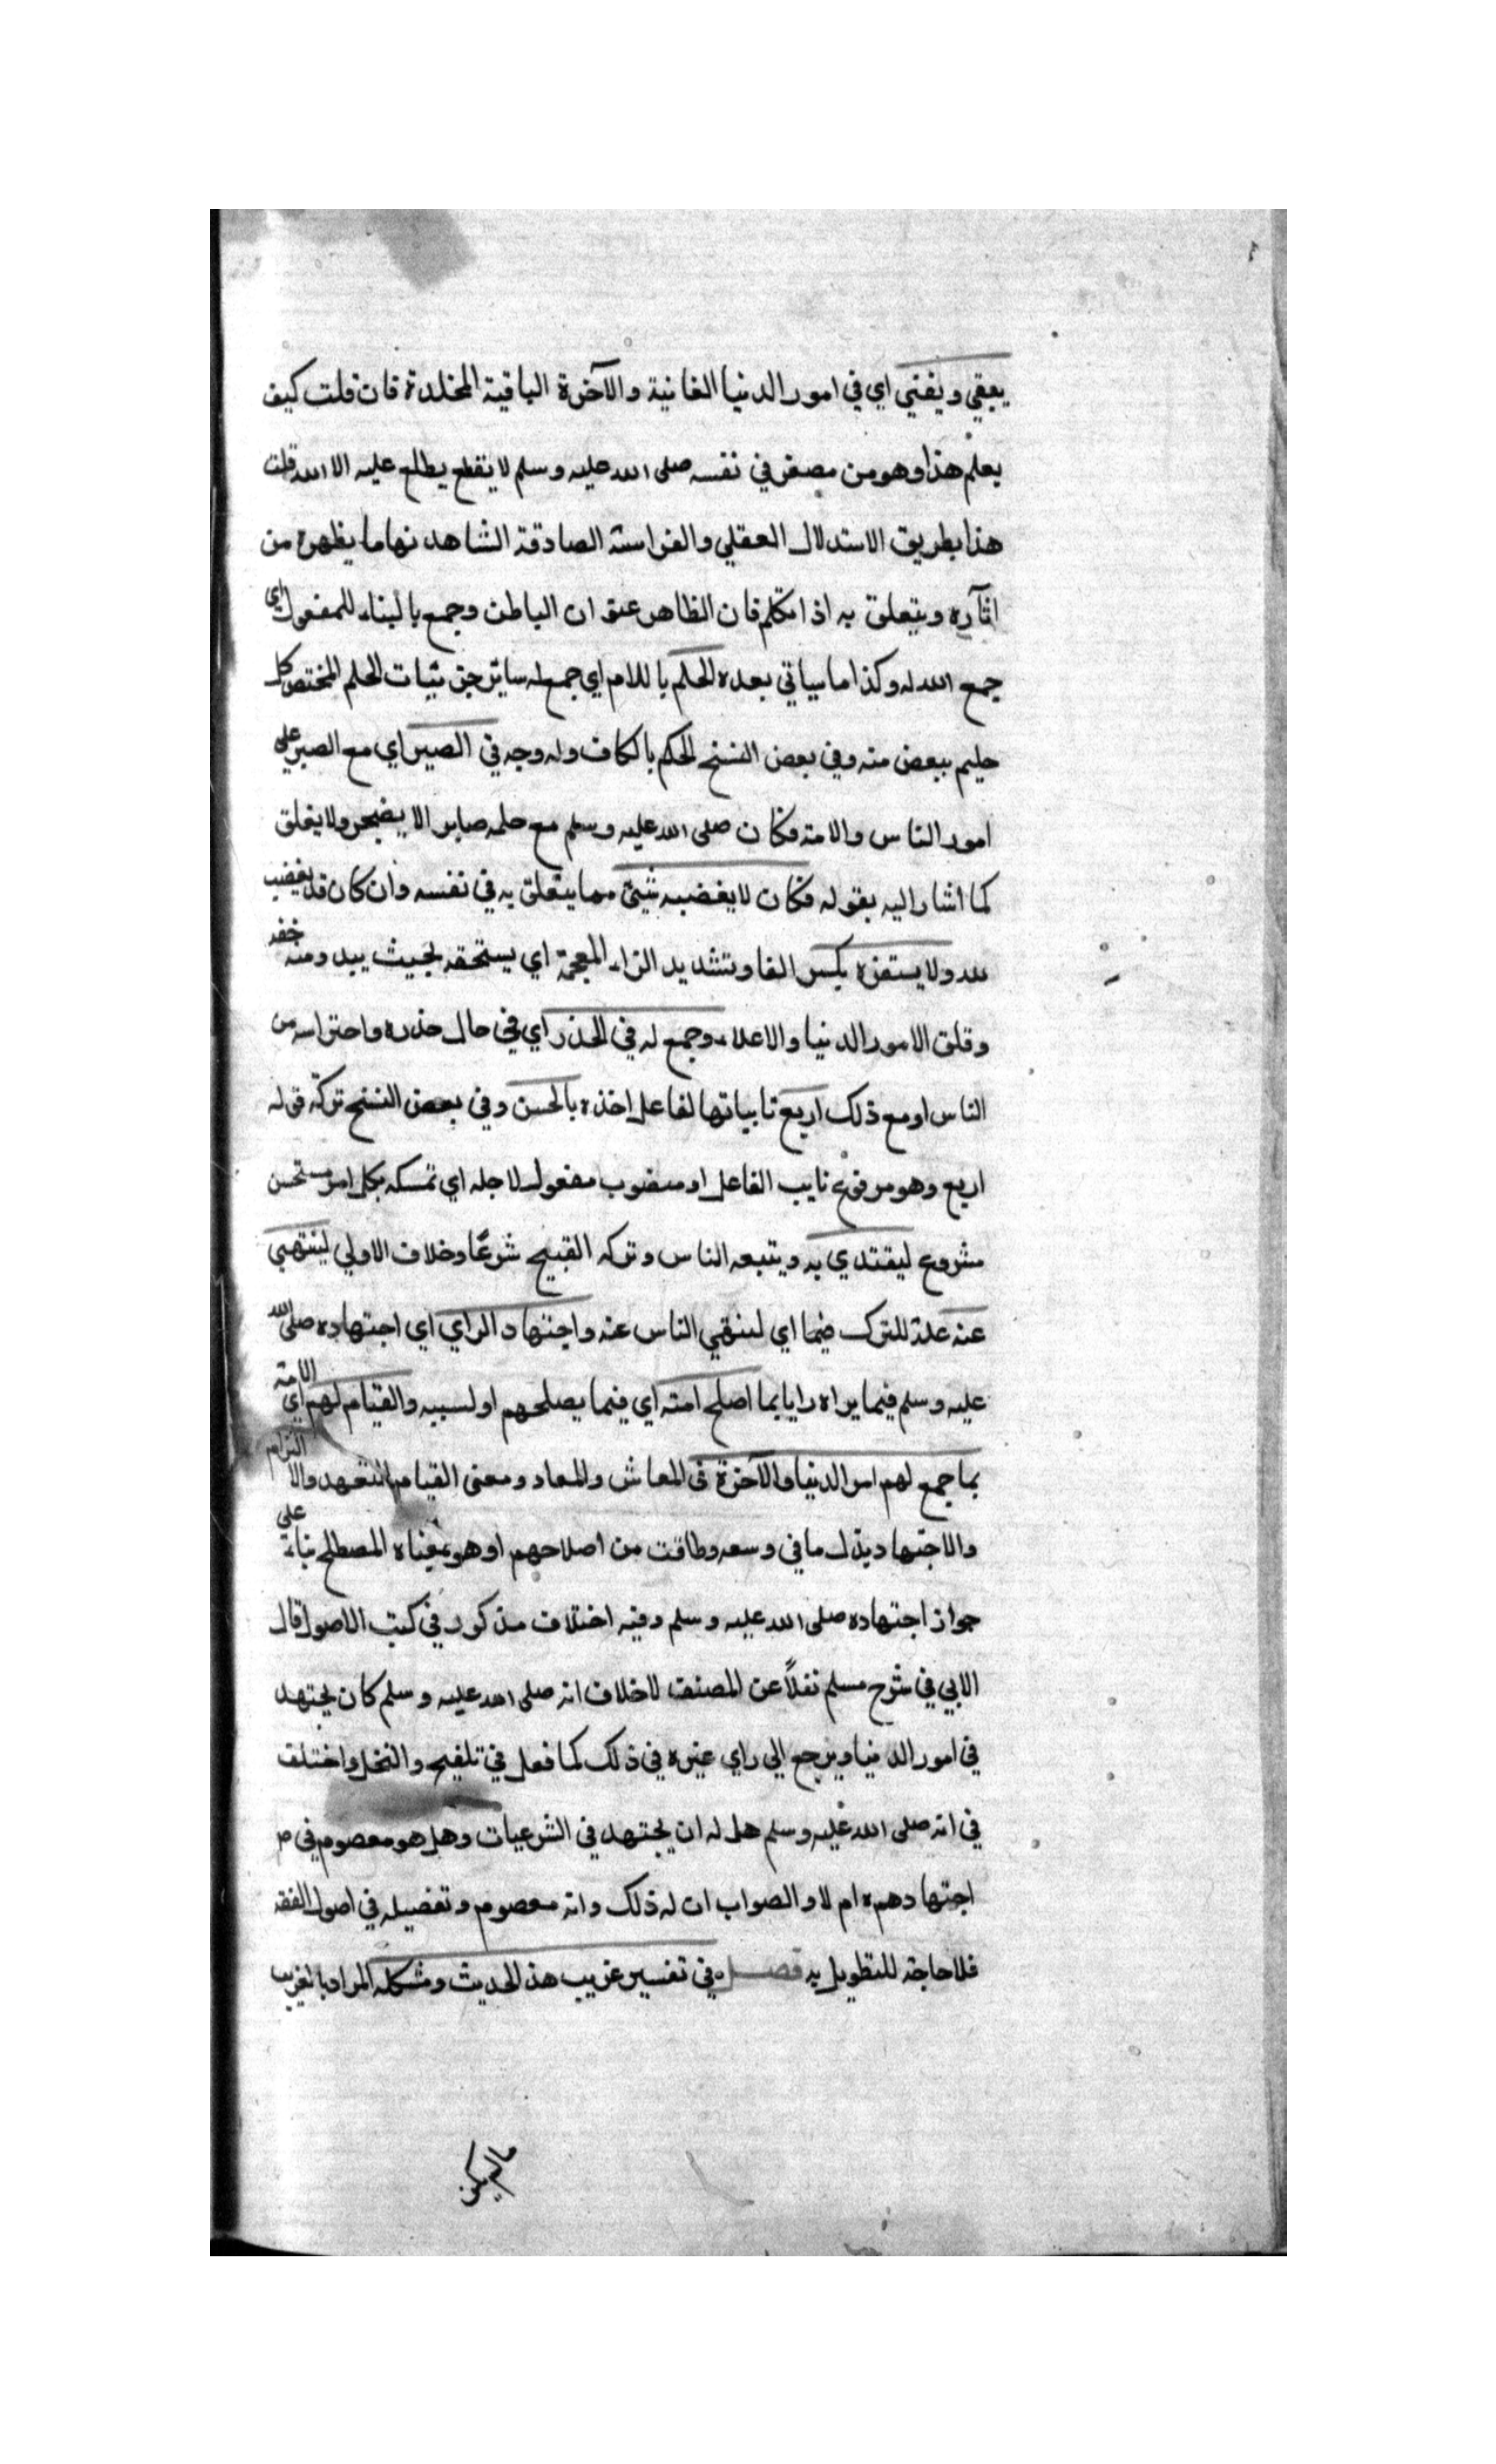 يبقي ويفني اي في امور الدنيا الفانية والآخرة الباقية المخلدة فان قلت كيف
يعلم هذا وهو من مصغر في نفسه صلى الله عليه وسلم لا يقطع يطلع عليه الا الله قلت
هذا بطريق الاستدلال العقلي والفراسة الصادقة الشاهد نها ما يظهره من
اثاره ويتعلق به اذا تكلم فان الظاهر عنوان الباطن وجمع بالبناء للمفعول اي
جمع الله له وكذا ما سياتي بعده الحلم باللام اي جمع له ساير جزئيات الحلم المختص كل
حليم ببعض منه وفي بعض النسخ الحكم بالكاف وله وجه في الصبر اي مع الصبر علي
امور الناس والامة فكان صلى الله عليه وسلم مع حلمه صابرا لا يضجر ولا يقلق
كما اشار اليه بقوله فكان لا يغضبه شيئ مما يتعلق به في نفسه وان كان قد يغضب
لله ولا يستفزه بكسر الفا وتشديد الزاء المعجمة اي يستخفه بحيث يبدو منه خفة
وقلق الامور الدنيا والاعلاء وجمع له في الحذر اي في حال حذره واحتراسه من
الناس او مع ذلك اربع نا بياتها لفاعل اخذه بالحسن وفي بعض النسخ تركه قوله
اربع وهو مرفوع نايب الفاعل او منصوب مفعول لاجله اي تمسكه بكل امر مستحسن
مشروع ليقتدي به ويتبعه الناس وتركه القبيح شرعًا وخلاف الاولي لينتهي
عنه علة للترك فيما اي لينتهي الناس عنه واجتهاد الراي اي اجتهاده صلى الله
عليه وسلم فيما يراه رايا بما اصلح امته اي فيما يصلحهم او لسببه والقيام لهم اي الامة
بما جمع لهم امر الدنيا والآخرة في المعاش والمعاد ومعنى القيام التعهد والا التزام
والاجتهاد بذل ما في وسعه وطاقت من اصلاحهم او هو بمعناه المصطلح بناء على
جواز اجتهاده صلى الله عليه وسلم وفيه اختلاف مذكور في كتب الاصول قال
الابي في شرح مسلم نقلاً عن المصنف لا خلاف انه صلى الله عليه وسلم كان يجتهد
في امور الدنيا ويرجع الي راي غيره في ذلك كما فعل في تلقيح والنخل واختلف
في انه صلى الله عليه وسلم هل له ان يجتهد في الشرعيات وهل هو معصوم في م
اجتهادهم ه ام لا والصواب ان له ذلك وانه معصوم وتفصيله في اصول الفقه
فلا حاجة للتطويل به فصل في تفسير غريب هذ الحديث ومشكله المراد بالغريب
ما لم يكن